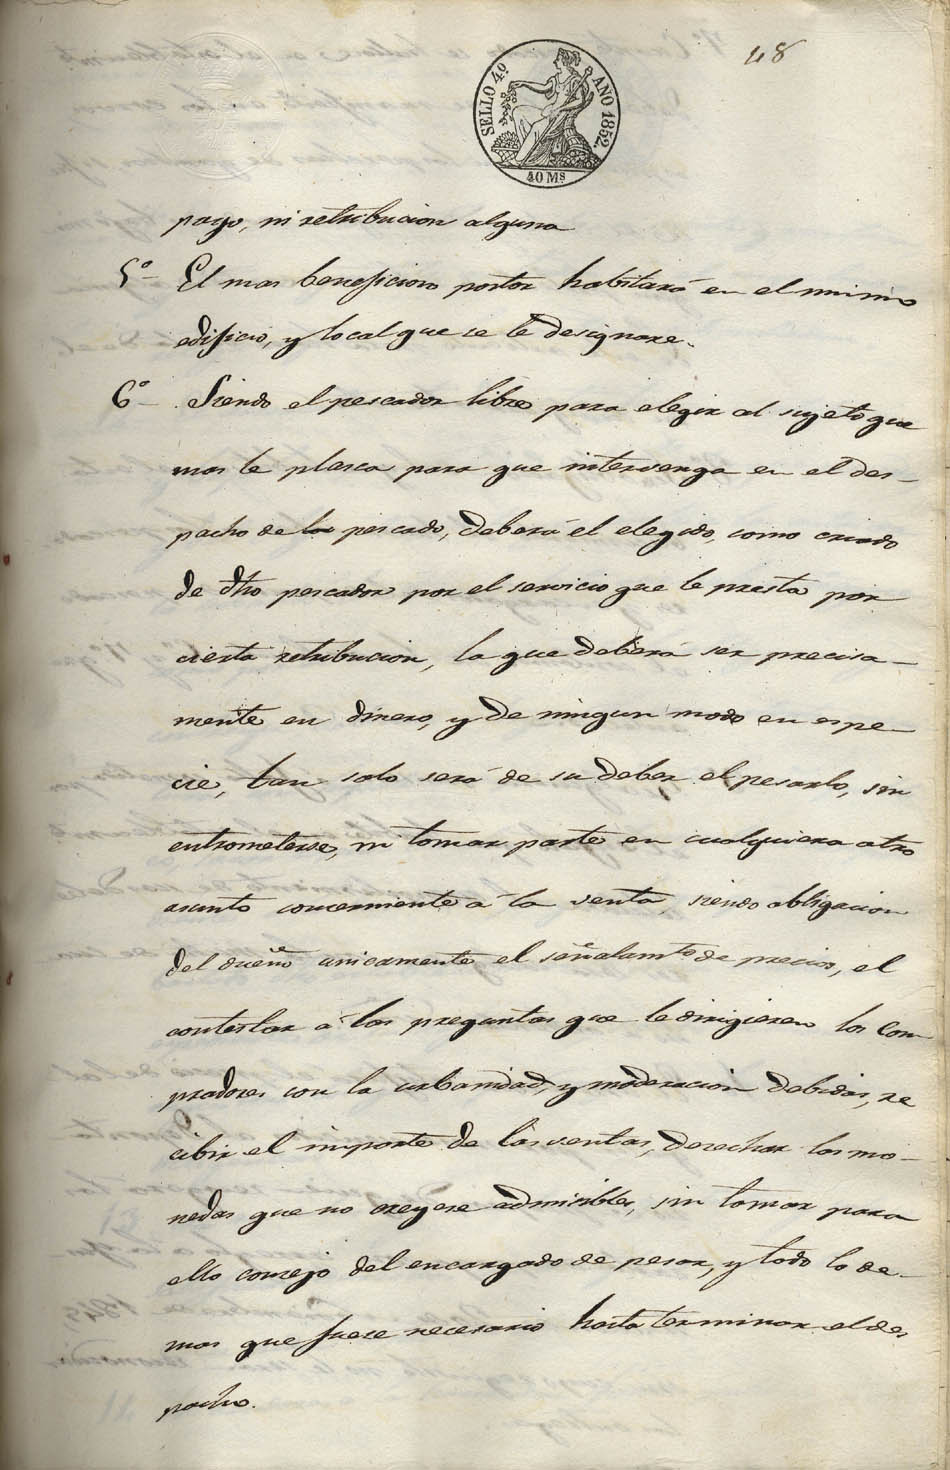 48
SELLO 4º AÑO 1852.
40 Ms
pago, ni retribucion alguna
5º El mas beneficioso postor habitará en el mismo
edificio, y local que se le designare.
6º Siendo el pescador libre para elegir al sujeto que
mas le plasca para que intervenga en el des-
pacho de la pescado, deberá el elegido, como criado
de dho pescador por el servicio que le presta por
cierta retribucion, la que deberá ser precisa-
mente en dinero, y de ningun modo en espe-
cie, tan solo será de su deber el pesarlo, sin
entrometerse, ni tomar parte en cualquiera otro
asunto concerniente á la venta, siendo obligacion
del dueño unicamente el señalamto de precios, el
contestar á las preguntas que le dirigieren los com
pradores con la urbanidad, y moderacion debidas, re
cibir el importe de las ventas, desechar las mo-
nedas que no creyese admisibles, sin tomar para
ello consejo del encargado de pesar, y todo lo de-
mas que fuese necesario hasta terminar el des
pacho.